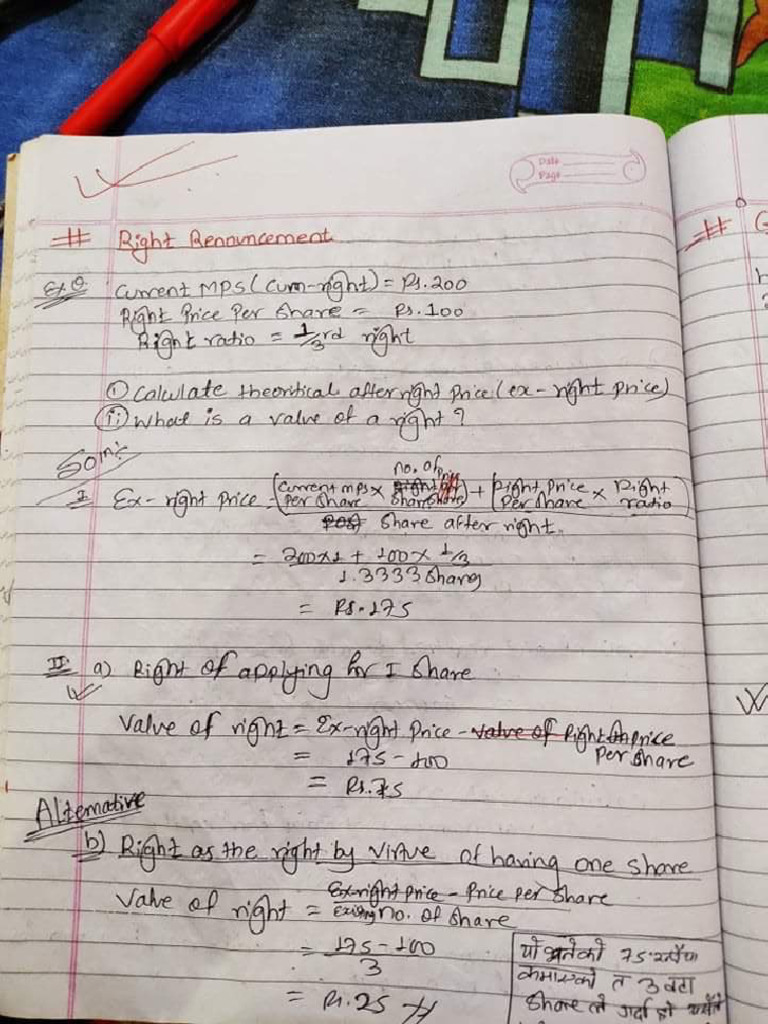 Date
Page
# Right Renouncement
Ex. Q. Current MPS (cum-right) = Rs. 200
Right Price Per Share = Rs. 100
Right ratio = 1/3rd right
① Calculate theoritical after right price (ex-right price)
② What is a value of a right?
Som:
I Ex-right price = (Current mps Per Share × no. of Share) + (Right Price Per Share × Right ratio)
Share after right.
= 200×1 + 100 × 1/3
1.3333 Shares
= Rs. 175
II a) Right of applying for 1 Share
Value of right = Ex-right Price - Right price
= 175 - 100 Per Share
= Rs. 75
Alternative
b) Right as the right by virtue of having one share
Value of right = Ex-right price - Price per Share
Existing No. of Share
= 175 - 100
3
= Rs. 25 #
यो भनेको 75
कमाएको त 3 वटा
Share ले गर्दा हो
# G
W